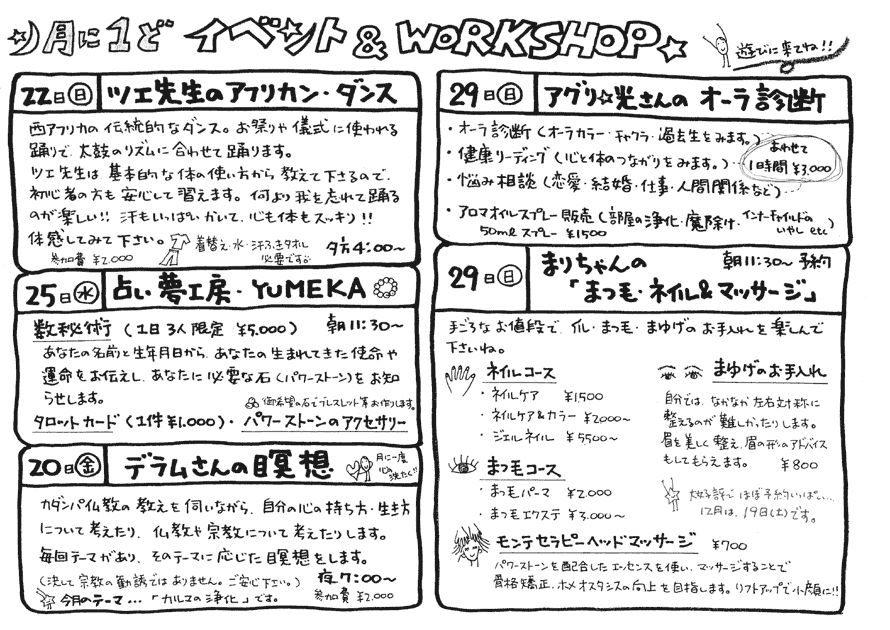 月に1ど イベント & WORKSHOP
遊びに来てね!!
22日(日) ツェ先生のアフリカン・ダンス
西アフリカの伝統的なダンス。お祭りや儀式に使われる
踊りで、太鼓のリズムに合わせて踊ります。
ツェ先生は、基本的な体の使い方から教えて下さるので、
初心者の方も安心して習えます。何より我を忘れて踊る
のが楽しい!! 汗もいっぱいかいて、心も体もスッキリ!!
体感してみて下さい。
着替え・水・汗ふきタオル
必要です
夕方4:00〜
参加費 ¥2,000
25日(水) 占い夢工房・YUMEKA
数秘術 (1日3人限定 ¥5,000) 朝11:30〜
あなたの名前と生年月日から、あなたの生まれてきた使命や
運命をお伝えし、あなたに必要な石(パワーストーン)をお知
らせします。
御希望の石でブレスレット等お作りします。
タロットカード(1件¥1,000)・パワーストーンのアクセサリー
20日(金) デラムさんの瞑想
月に一度
心の
洗たく!!
カダンパ仏教の教えを伺いながら、自分の心の持ち方・生き方
について考えたり、仏教や宗教について考えたりします。
毎回テーマがあり、そのテーマに応じた瞑想をします。
(決して宗教の勧誘ではありません。ご安心下さい。) 夜7:00〜
今月のテーマ…「カルマの浄化」です。
参加費 ¥2,000
29日(日) アグリ☆光さんの オーラ診断
・オーラ診断(オーラカラー・チャクラ・過去生をみます。)
・健康リーディング(心と体のつながりをみます。)
・悩み相談(恋愛・結婚・仕事・人間関係など)
あわせて
1時間 ¥3,000
・アロマオイルスプレー販売(部屋の浄化・魔除け・インナーチャイルドの
いやし etc)
50mlスプレー ¥1500
29日(日) まりちゃんの 朝11:30〜 予約
「まつ毛・ネイル&マッサージ」
手ごろなお値段で、爪・まつ毛・まゆげのお手入れを楽しんで
下さいね。
ネイルコース
・ネイルケア ¥1500
・ネイルケア&カラー ¥2000〜
・ジェルネイル ¥5500〜
まつ毛コース
・まつ毛パーマ ¥2,000
・まつ毛エクステ ¥3,000〜
まゆげのお手入れ
自分では、なかなか左右対称に
整えるのが難しかったりします。
眉を美しく整え、眉の形のアドバイス
もしてもらえます。 ¥800
大好評で ほぼ予約いっぱい…
12月は、19日(土)です。
モンテセラピーヘッドマッサージ ¥700
パワーストーンを配合したエッセンスを使い、マッサージすることで
骨格矯正、ホメオスタシスの向上を目指します。リフトアップで小顔に!!